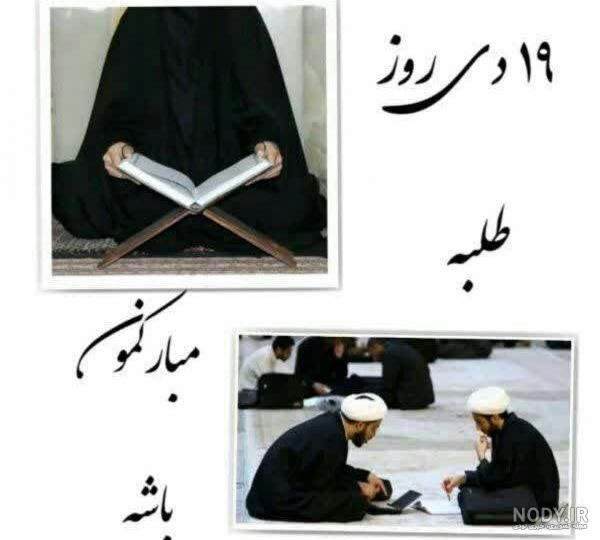 ۱۹ دی روز
طلبه
مبارکمون
باشه
NODY.IR